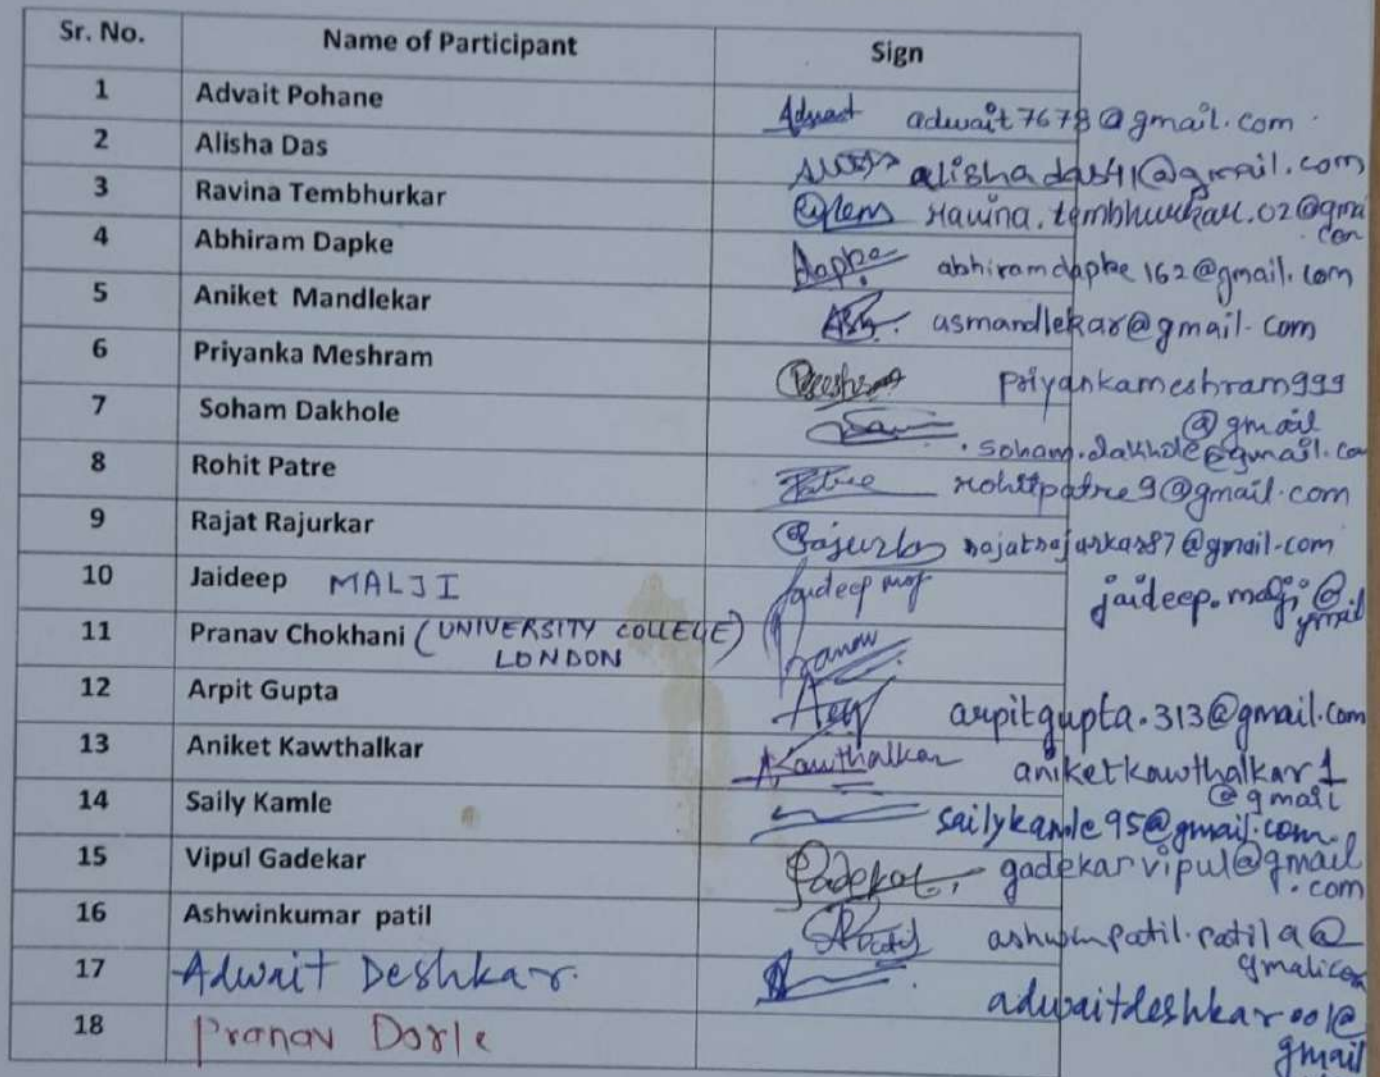 Sr. No. Name of Participant Sign
1 Advait Pohane Adwait adwait7678@gmail.com
2 Alisha Das alishadas41@gmail.com
3 Ravina Tembhurkar ravina.tembhurkar.02@gmai
.com
4 Abhiram Dapke Dapke abhiramdapke162@gmail.com
5 Aniket Mandlekar asmandlekar@gmail.com
6 Priyanka Meshram priyankameshram999
@gmail
7 Soham Dakhole soham.dakhole@gmail.co
8 Rohit Patre Patre rohitpatre9@gmail.com
9 Rajat Rajurkar Rajurkar rajatrajurkar87@gmail.com
10 Jaideep MALJI Jaideep jaideep.malji@
gmail
11 Pranav Chokhani (UNIVERSITY COLLEGE) Pranav
LONDON
12 Arpit Gupta arpitgupta.313@gmail.com
13 Aniket Kawthalkar AKawthalkar aniketkawthalkar1
@gmail
14 Saily Kamle sailykamle95@gmail.com
15 Vipul Gadekar Gadekar gadekarvipul@gmail
.com
16 Ashwinkumar patil APatil ashwinpatil.patil9@
17 Adwait Deshkar adwaitdeshkar001@
gmail
18 Pranav Dorle